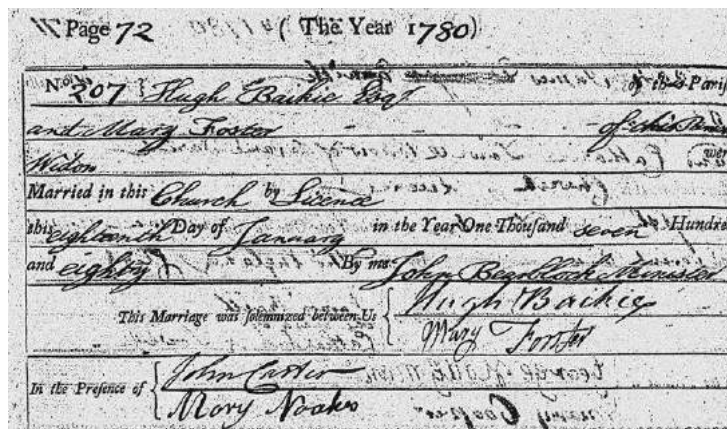 Page 72 ( The Year 1780)
No. 207 } Hugh Baikie Esqr of this Paris
and Mary Foster - - - of this Parish
Widow were
Married in this Church by Licence
this eighteenth Day of January in the Year One Thousand seven Hundre
and eighty By me John Bearblock Minister
This Marriage was solemnized between Us { Hugh Baikie
Mary Forster
In the Presence of { John Carter
Mary Noakes